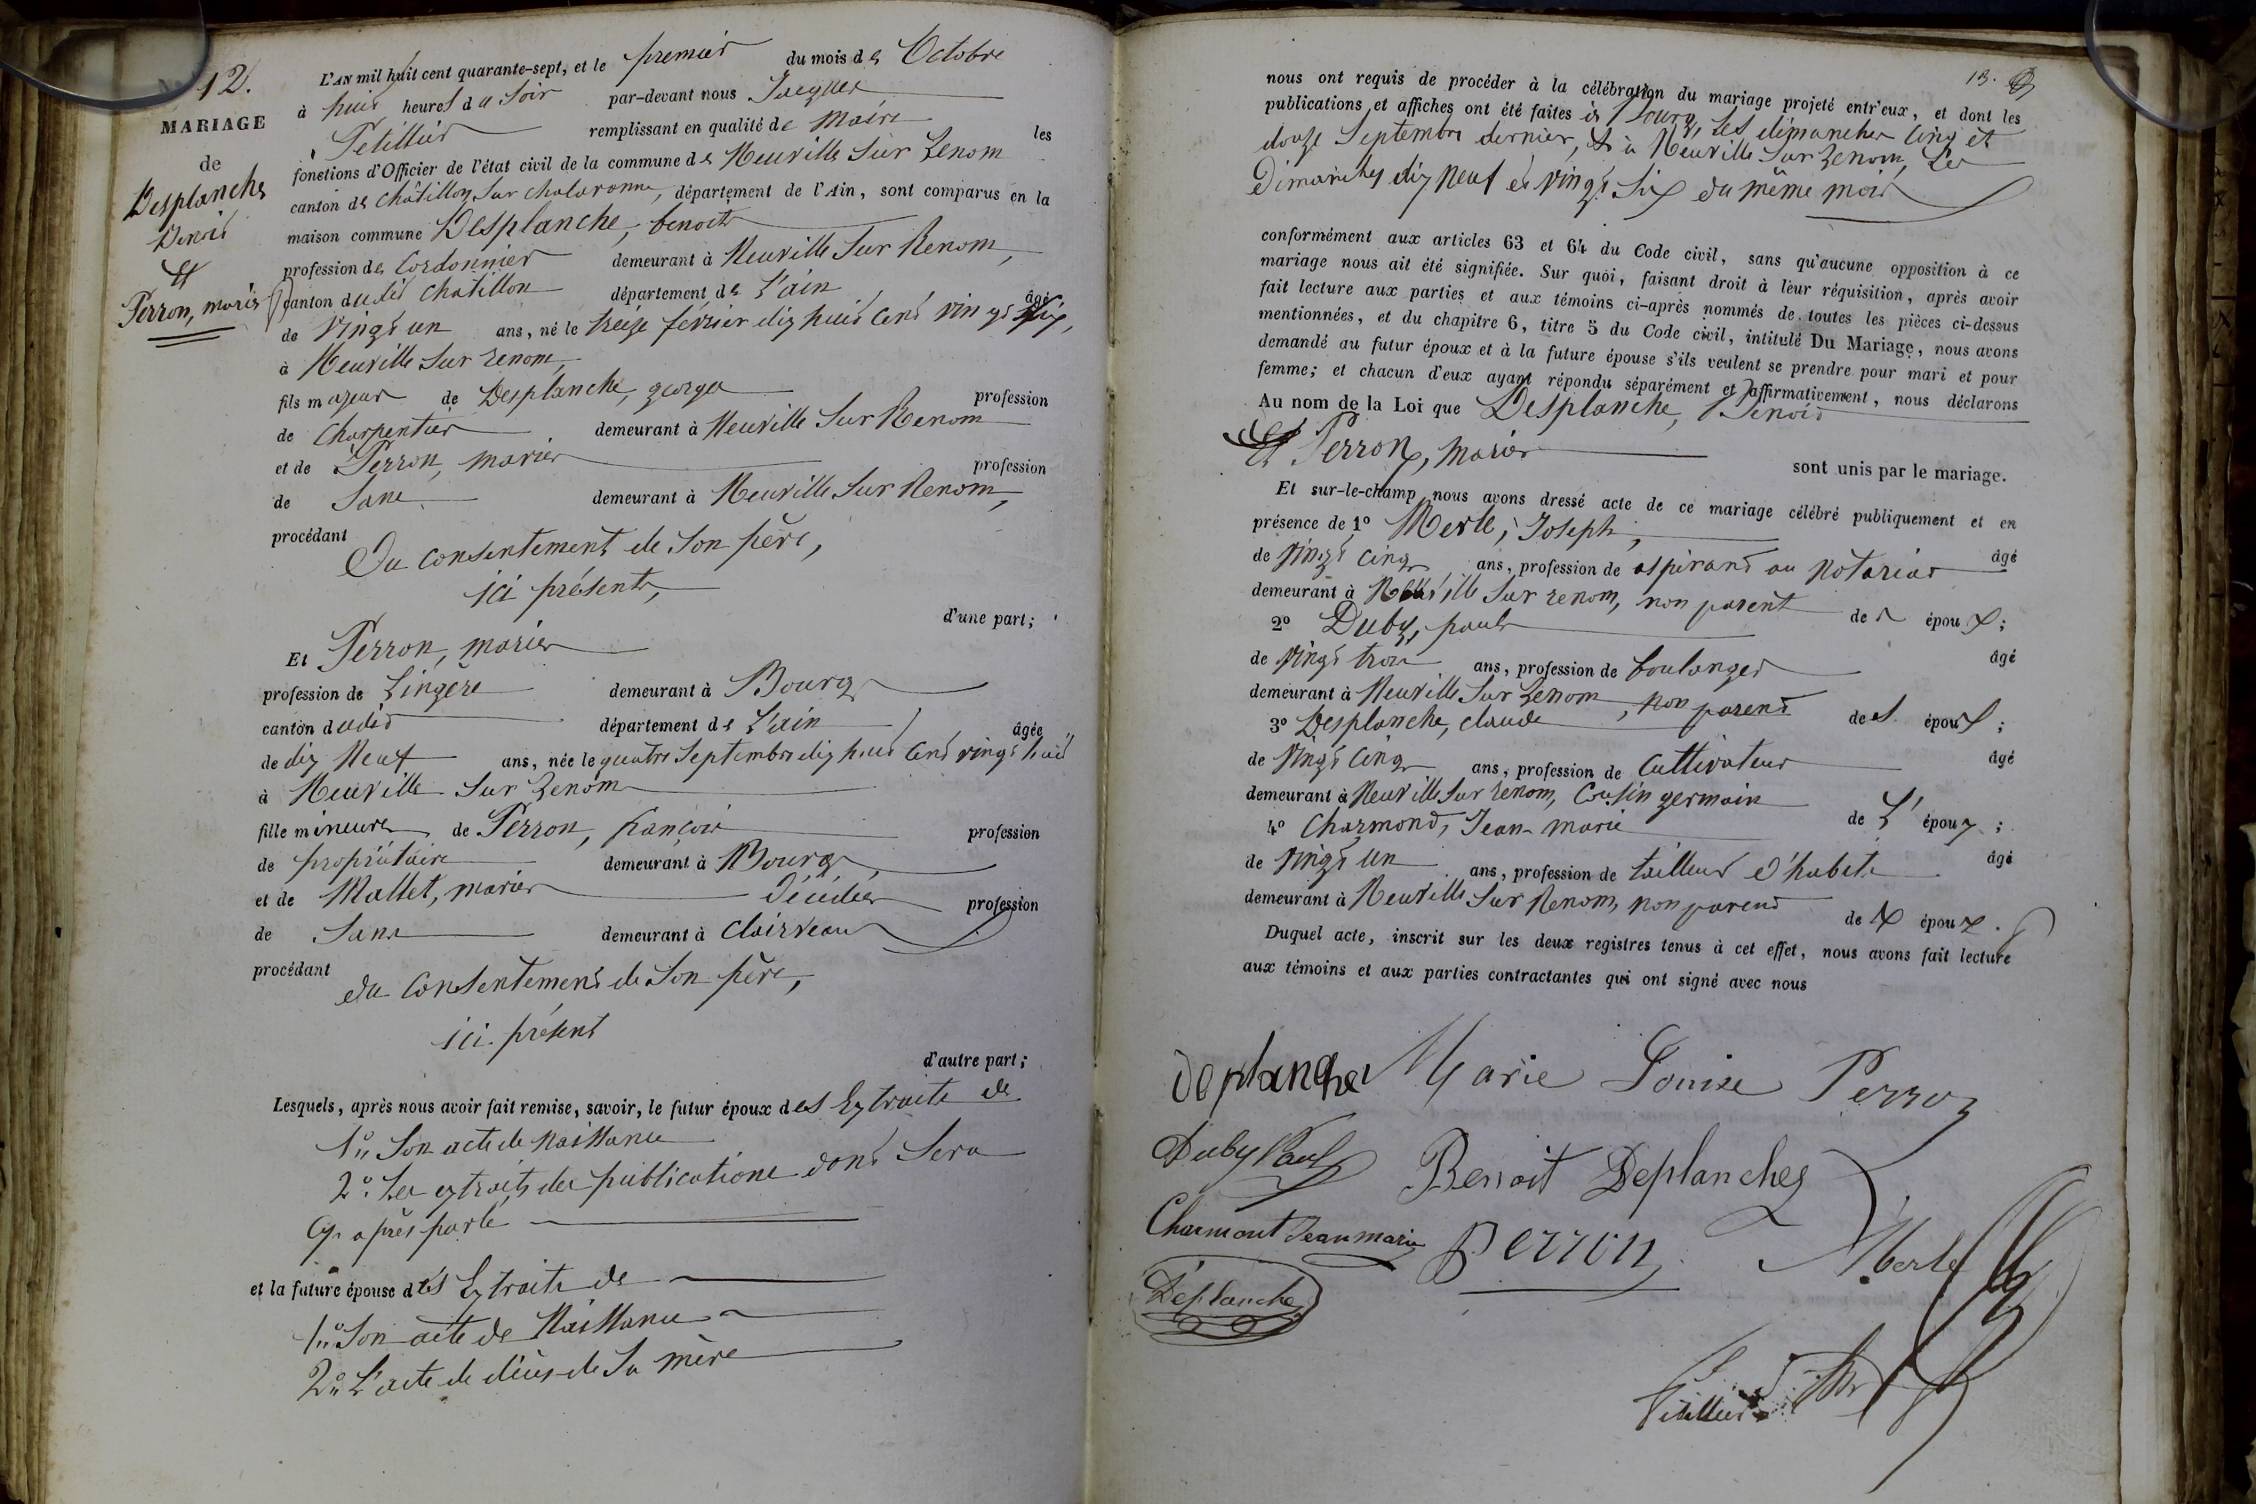 12.
MARIAGE
de
Desplanche
Benoit
Et
Perron, marie
L'AN mil huit cent quarante-sept, et le premier du mois de Octobre
à huit heures du Soir par-devant nous Jacques
Petillier remplissant en qualité de Maire les
fonctions d'Officier de l'état civil de la commune de Neuville Sur Renom
canton de Châtillon Sur Chalaronne, département de l'Ain, sont comparus en la
maison commune Desplanche, benoit
profession de Cordonnier demeurant à Neuville Sur Renom,
canton dudit Chatillon département de L'ain âgé
de vingt un ans, né le treize fevrier dix huit cent vingt six,
à Neuville Sur renom,
fils majeur de Desplanche, george profession
de Charpentier demeurant à Neuville Sur Renom
et de Perron, marie profession
de Sane demeurant à Neuville Sur Renom,
procédant
Du consentement de Son père,
ici présent,
d'une part;
Et Perron, marie
profession de Lingère demeurant à Bourg
canton dudit département de L'ain âgée
de dix Neuf ans, née le quatre Septembre dix huit cent vingt huit
à Neuville Sur Renom
fille mineure de Perron, françois profession
de propriétaire demeurant à Bourg
et de Mallet, marie Décédée profession
de Sane demeurant à Clairveau
procédant
du Consentement de Son père,
ici présent
d'autre part;
Lesquels, après nous avoir fait remise, savoir, le futur époux des Extraits de
1° Son acte de naissance
2° Les extraits des publications dont Sera
Cy après parlé
et la future épouse des Extraits de
1° Son acte de Naissance
2° L'acte de décès de Sa mère
13.
nous ont requis de procéder à la célébration du mariage projeté entr'eux, et dont les
publications et affiches ont été faites à Bourg, les dimanches Cinq et
douze Septembre dernier, & à Neuville Sur Renom, Les
Dimanches dix Neuf et vingt Six du même mois
conformément aux articles 63 et 64 du Code civil, sans qu'aucune opposition à ce
mariage nous ait été signifiée. Sur quoi, faisant droit à leur réquisition, après avoir
fait lecture aux parties et aux témoins ci-après nommés de toutes les pièces ci-dessus
mentionnées, et du chapitre 6, titre 5 du Code civil, intitulé Du Mariage, nous avons
demandé au futur époux et à la future épouse s'ils veulent se prendre pour mari et pour
femme; et chacun d'eux ayant répondu séparément et affirmativement, nous déclarons
Au nom de la Loi que Desplanche, Benoit
Et Perron, Marie sont unis par le mariage.
Et sur-le-champ nous avons dressé acte de ce mariage célébré publiquement et en
présence de 1° Merle, Joseph, âgé
de vingt cinq ans, profession de aspirant au notariat
demeurant à Neuville Sur renom, non parent des époux;
2° Duby, paul âgé
de vingt trois ans, profession de boulanger
demeurant à Neuville Sur Renom, non parent des époux;
3° Desplanche, claude âgé
de vingt Cinq ans, profession de Cultivateur
demeurant à Neuville Sur renom, Cousin germain de L' époux;
4° Charmond, Jean-marie âgé
de vingt un ans, profession de tailleur d'habits
demeurant à Neuville Sur Renom, non parent des époux.
Duquel acte, inscrit sur les deux registres tenus à cet effet, nous avons fait lecture
aux témoins et aux parties contractantes qui ont signé avec nous
deplanche Marie Louise Perron
Duby Paul Benoit Deplanches
Charmont Jean marie Perron Merle
Déplanche
Petillier